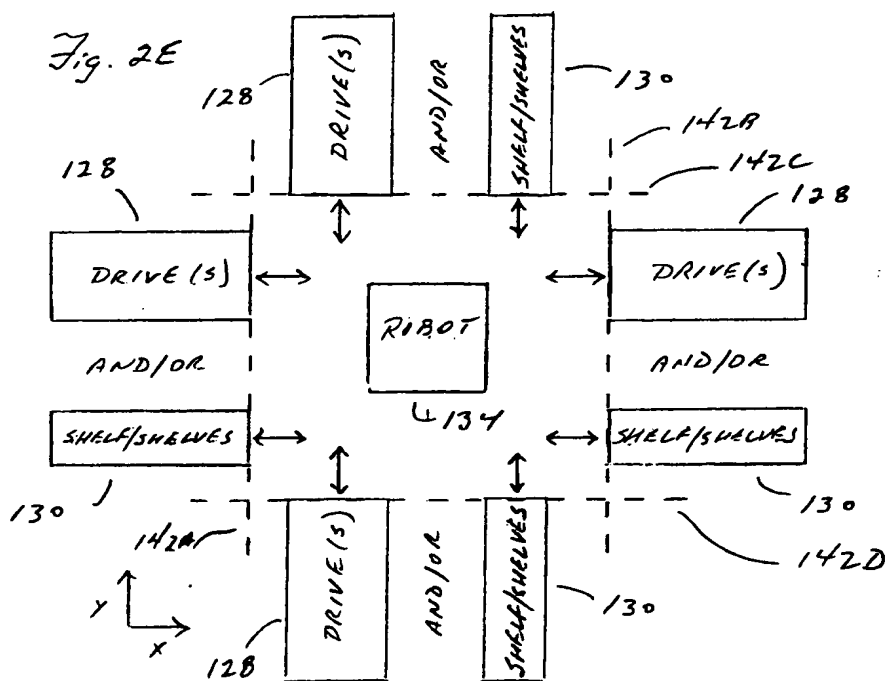 Fig. 2E
128
DRIVE(S)
AND/OR
SHELF/SHELVES
130
142B
142C
128
DRIVE(S)
128
DRIVE(S)
ROBOT
134
AND/OR
AND/OR
SHELF/SHELVES
130
SHELF/SHELVES
130
142A
142D
DRIVE(S)
128
AND/OR
SHELF/SHELVES
130
Y
X